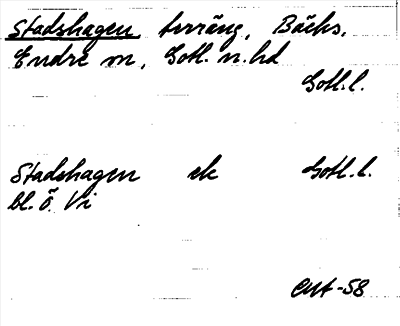 Stadshagen terräng, Bäcks,
Endre sn, Gotl. n. hd
Gotl. l.
Stadshagen ek Gotl. l.
bl. ö. Vi
-58